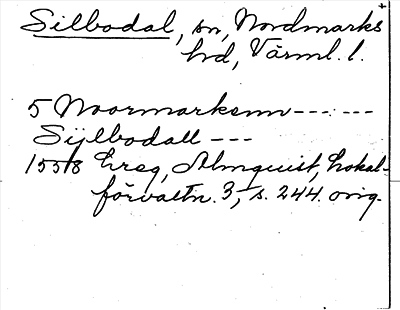 Silbodal, sn, Nordmarks
hd, Värml. l.
5 Noormarksnn --- ---
Sijlbodall ---
1558 Ereg, Almquist, Lokal-
förvaltn. 3, s. 244. orig.